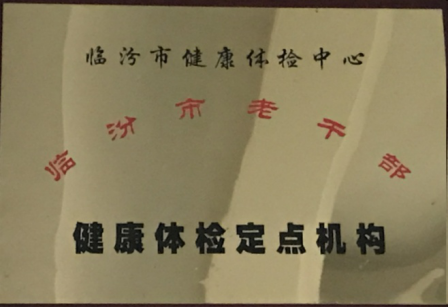 临汾市健康体检中心
临汾市老干部
健康体检定点机构